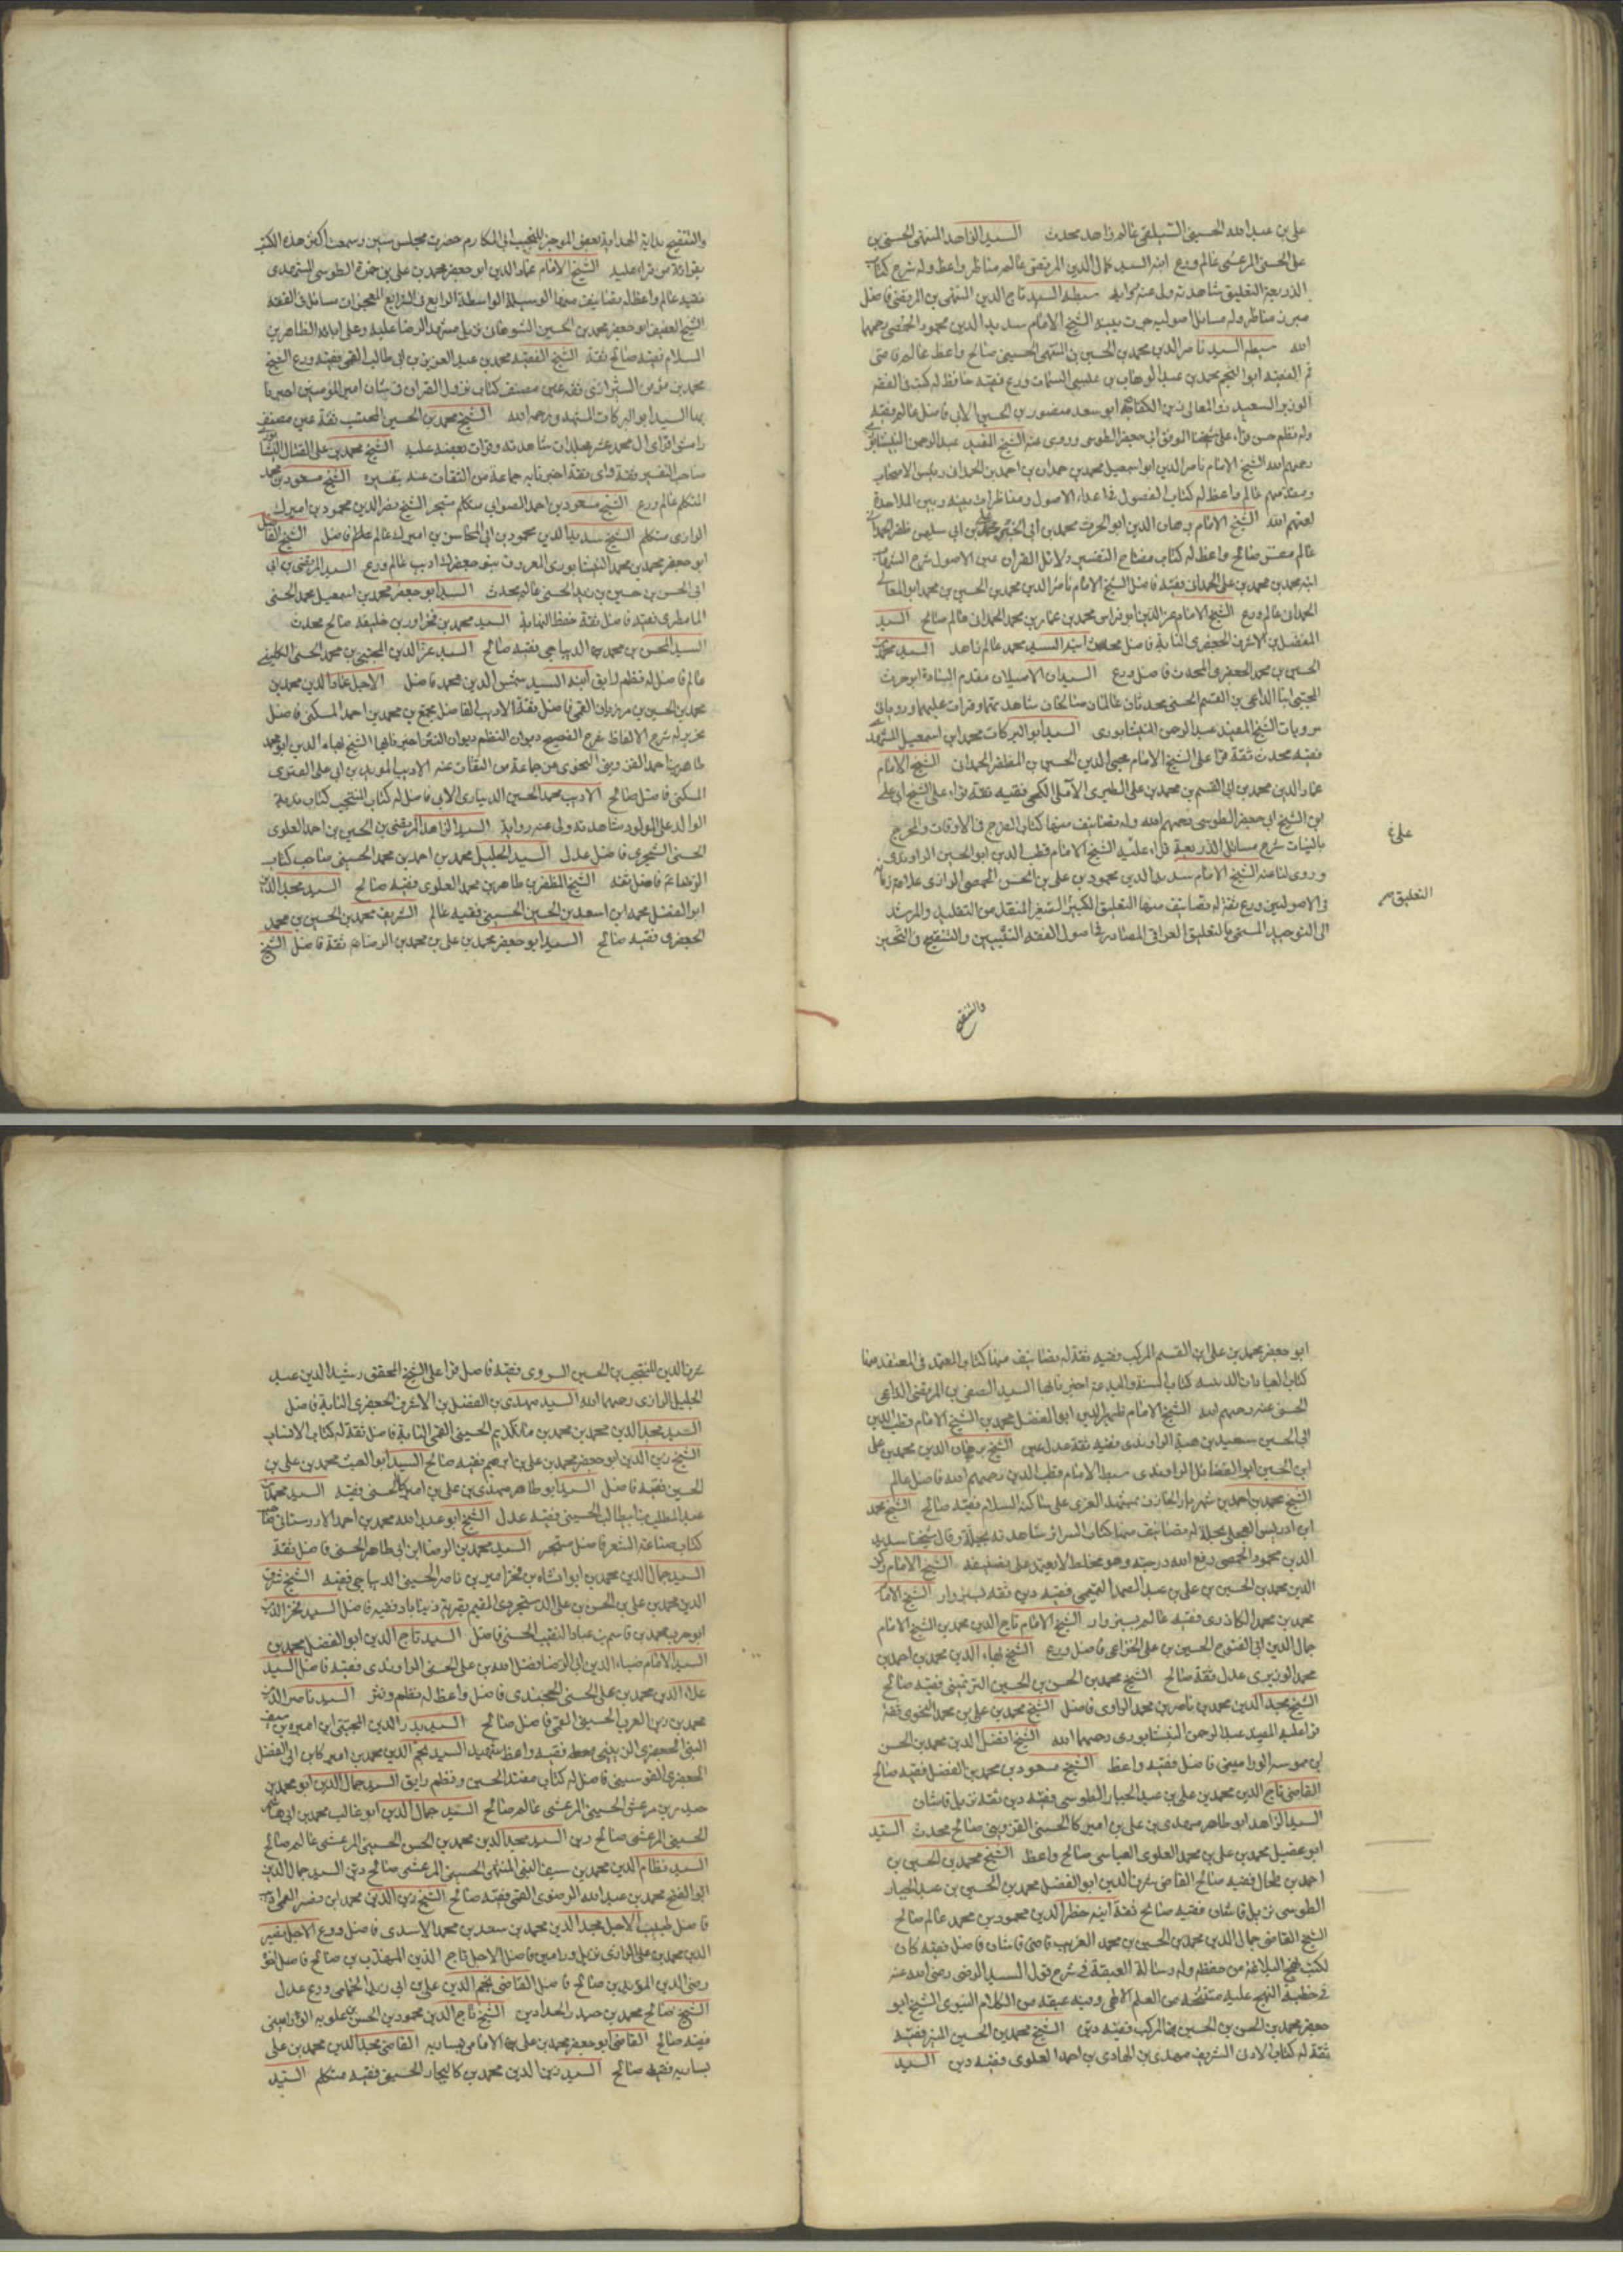 علی بن عبدالله الحسینی السیلقی عالم زاهد محدث السید الزاهد المنتهی الحسینی بن
علی الحسنی المرعشی عالم ورع ابنه السید کمال الدین المرتضی عالم مناظر واعظ وله شرح کتاب
الذریعة التعلیق شاهدته ولی عنه روایه سبطه السید تاج الدین المنتهی بن المرتضی فاضل
مبرز مناظر وله مسائل اصولیه جرت بینه الشیخ الامام سدید الدین محمود الحمصی رحمهما
الله سبطه السید ناصر الدین محمد بن الحسین بن المنتهی الحسینی صالح واعظ عالم قاضی
قم الفقیه ابو النجم محمد بن عبد الوهاب بن عیسی السمان ورع فقیه حافظ له کتب فی الفقه
الوزیر السعید ذو المعالی زین الکفاة ابو سعد منصور بن الحسین الابی فاضل عالم فقیه
وله نظم حسن قراء علی شیخنا الموفق ابی جعفر الطوسی وروی عنه الشیخ المفید عبد الرحمن النیشابوری
رحمهم الله الشیخ الامام ناصر الدین ابو اسمعیل محمد بن حمدان بن احمد بن الحمدانی رئیس الاصحاب
ومقدمهم عالم واعظ له کتاب الفصول فی اعداء الاصول ومناظرات بینه وبین الملاحدة
لعنهم الله الشیخ الامام برهان الدین ابو الحرث محمد بن ابی الخیر علی بن ابی سلیمن ظفر الحمدانی
عالم مفسر صالح واعظ له کتاب مفتاح التفسیر دلائل القران عین الاصول شرح الشهاب
ابنه محمد بن محمد بن علی الحمدانی فقیه فاضل الشیخ الامام ناصر الدین محمد بن الحسین بن محمد ابو المعالی
الحمدانی عالم ورع الشیخ الامام عز الدین ابو فراس محمد بن عمار بن محمد الحمدانی عالم صالح السید
المفضل بن الاشرف الجعفری النسابة فاضل محدث ابنه السید محمد عالم زاهد السید محمد بن
الحسین بن محمد الجعفری المحدث فاضل ورع السیدان الاصیلان مقدم السادة ابو حرب
المجتبی ابنا الداعی بن القسم الحسنی محدثان عالمان صالحان شاهدتهما وقرات علیهما وروبا لی
مرویات الشیخ المفید عبد الرحمن النیشابوری السید ابو البرکات محمد ابن اسمعیل المشهدی
فقیه محدث ثقة قرا علی الشیخ الامام محیی الدین الحسین بن المظفر الحمدانی الشیخ الامام
عماد الدین محمد بن ابی القسم بن محمد بن علی الطبری الآملی الکحی فقیه ثقة قراء علی الشیخ ابی علی
ابن الشیخ ابی جعفر الطوسی رحمهم الله وله تصانیف منها کتاب الفرج فی الاوقات والمخرج
بالبینات شرح مسائل الذریعة قراء علیه الشیخ الامام قطب الدین ابو الحسین الراوندی
وروی لنا عنه الشیخ الامام سدید الدین محمود بن علی بن الحسن الحمصی الرازی علامة زمانه
فی الاصولیین ورع ثقة له تصانیف منها التعلیق الکبیر الصغیر المنقذ من التقلید والمرشد
الی التوحید المسمی بالتعلیق العراقی المصادر فی اصول الفقه التبیین والتنقیح فی التحسین
علی
التعلیق
والتنقیح
والتقبیح بدایة الهدایة نقض الموجز للنجیب ابی المکارم حضرت مجلس سنین وسمعت اکثر هذه الکتب
بقرائة من قراء علیه الشیخ الامام عماد الدین ابو جعفر محمد بن علی بن حمزة الطوسی المشهدی
فقیه عالم واعظ له تصانیف منها الوسیلة الواسطة الرایع فی الشرایع المعجزات مسائل فی الفقه
الشیخ العفیف ابو جعفر محمد بن الحسین الشوهانی نزیل مشهد الرضا علیه وعلی ابائه الطاهرین
السلام فقیه صالح ثقة الشیخ الفقیه محمد بن عبد العزیز بن ابی طالب القمی فقیه ورع الشیخ
محمد بن مؤمن الشیرازی ثقة عین مصنف کتاب نزول القران فی شان امیر المؤمنین اخبرنا
بها السید ابو البرکات المشهدی رحمه الله الشیخ محمد بن الحسین المحتسب ثقة عین مصنف
رامش افزای ال محمد عشر مجلدات شاهدته وقرات بعضه علیه الشیخ محمد بن علی الفتال النیشابوری
صاحب التفسیر ثقة وای ثقة اخبرنا به جماعة من الثقات عنه بتفسیره الشیخ مسعود بن محمد
المتکلم عالم ورع الشیخ مسعود بن احمد الصوابی متکلم متبحر الشیخ معز الدین محمود بن امیرک
الرازی متکلم الشیخ سدید الدین محمود بن ابی المحاسن بن امیرک عالم فاضل الشیخ الفاضل
ابو جعفر محمد بن محمد النیشابوری المعروف ببو جعفرک ادیب عالم ورع السید المرتضی بن ابی
ابی الحسن بن حسین بن زید الحسنی عالم محدث السید ابو جعفر محمد بن اسمعیل محمد الحسنی
المامطری فقیه فاضل ثقة حفظ النهایة السید محمد بن فخراور بن خلیفة صالح محدث
السید المحسن بن محمد الدیباجی فقیه صالح السید عز الدین المجتبی بن محمد الحسنی الکلینی
عالم فاضل له نظم رایق ابنه السید شمس الدین محمد فاضل الاجل عماد الدین محمد بن
محمد بن الحسین بن مرزبان القمی فاضل ثقة الادیب الفاضل مجمع بن محمد بن احمد المسکنی فاضل
طاهر بن احمد القزوینی النحوی عن جماعة من الثقات عنه الادیب الموید بن ابی علی
المسکنی فاضل صالح الادیب محمد الحسین الدیناری الابی فاضل له کتاب
الوالد علی المولود شاهدته ولی عنه روایة السید الزاهد المرتضی بن الحسین بن احمد العلوی
الحسنی الشجری فاضل عدل السید الجلیل محمد بن احمد بن محمد الحسینی صاحب کتاب
الرضا ع فاضل ثقة الشیخ المظفر بن طاهر بن محمد العلوی فقیه صالح السید مجد الدین
ابو الفضل محمد ابن اسعد بن الحسین الحسینی فقیه عالم الشریف محمد بن الحسین بن محمد
الجعفری فقیه صالح السید ابو جعفر محمد بن علی بن محمد بن الرضا ثقة فاضل الشیخ
ابو جعفر محمد بن علی ابن القسم المرکب فقیه ثقة له تصانیف منها کتاب المعتمد فی المعتقد منها
کتاب العبادات الدینیه کتاب السنة والبدعة اخبرنا بها السید الصفی بن المرتضی الداعی
الحسنی عنه رحمهم الله الشیخ الامام ظهیر الدین ابو الفضل محمد بن الشیخ الامام قطب الدین
ابی الحسین سعید بن هبة الراوندی فقیه ثقة عدل عین الشیخ برهان الدین محمد بن علی
ابن الحسین ابو الفضائل الراوندی سبط الامام قطب الدین رحمهم الله فاضل عالم
الشیخ محمد بن احمد بن شهریار الخازن بمشهد الغری علی ساکنه السلام فقیه صالح الشیخ محمد
ابن ادریس العجلی بحلة له تصانیف منها کتاب السرائر شاهدته بحلة وقال شیخنا سدید
الدین محمود الحمصی رفع الله درجته وهو مخلط لا یعتمد علی تصنیفه الشیخ الامام رکن
الدین محمد بن الحسین بن علی بن عبد الصمد التمیمی فقیه دین ثقه بسبزوار الشیخ الامام
محمد بن محمد الکاذری فقیه عالم بسبزوار الشیخ الامام تاج الدین محمد بن الشیخ الامام
جمال الدین ابی الفتوح الحسین بن علی الخزاعی فاضل ورع الشیخ بهاء الدین محمد بن احمد بن
محمد الوزیری عدل ثقة صالح الشیخ محمد بن الحسن بن الحسین فقیه صالح
الشیخ مجد الدین محمد بن ناصر بن محمد الراوی فاضل الشیخ محمد بن علی بن محمد النحوی ثقة
قرا علیه المفید عبد الرحمن النیشابوری رحمهما الله الشیخ افضل الدین محمد بن الحسن
بن موسه الورامینی فاضل فقیه واعظ الشیخ مسعود بن محمد بن الفضل فقیه صالح
القاضی تاج الدین محمد بن علی بن عبد الجبار الطوسی فقیه دین ثقه نزیل قاشان
السید الزاهد ابو طاهر مهدی بن علی بن امیرکا الحسنی القزوینی صالح محدث السید
ابو عقیل محمد بن علی بن محمد العلوی العباسی صالح واعظ الشیخ محمد بن الحسین بن
احمد بن طحال فقیه صالح القاضی ابو الفضل محمد بن الحسین بن عبد الجبار
الطوسی نزیل قاشان فقیه صالح ثقة ابنه خطیر الدین محمود بن محمد عالم صالح
الشیخ القاضی جمال الدین محمد بن الحسین بن محمد الغریب قاضی قاشان فاضل فقیه کان
لکتب نهج البلاغة من حفظه وله رسالة العبقة فی شرح قول السید الرضی رضی الله عنه
فی خطبة النهج علیه مسحة من العلم الالهی وفیه عبقه من الکلام النبوی الشیخ ابو
جعفر محمد بن الحسن بن الحسین المرکب فقیه دین الشیخ محمد بن الحسین فقیه
ثقة له کتاب الشریف مهدی بن الهادی بن احمد العلوی فقیه دین السید
الدین المنتجب بن الحسین السروی فقیه فاضل قرا علی الشیخ المحقق رشید الدین عبد
الجلیل الرازی رحمهما الله السید مهدی بن المفضل بن الاشرف الجعفری النسابة فاضل
السید مجد الدین محمد بن محمد بن مانکدیم الحسینی القمی النسابة فاضل ثقة له کتاب الانساب
الشیخ زین الدین ابو جعفر محمد بن علی بن ابرهیم فقیه صالح السید ابو الغیث محمد بن علی بن
الحسین فقیه فاضل السید ابو طاهر مهدی بن علی بن امیرکا الحسنی فقیه السید محمد بن
عبد المطلب بن ابیطالب الحسینی فقیه عدل الشیخ ابو عبد الله محمد بن احمد
کتاب صناعة الشعر فاضل متبحر السید محمد بن الرضا ابن ابی طاهر الحسنی فاضل ثقة
السید جمال الدین محمد بن ابو انشاه بن فخرامیر بن ناصر الحسینی الدیباجی فقیه الشیخ شرف
الدین محمد بن علی بن الحسن بن علی الدستجردی المقیم بقریة فقیه فاضل السید فخر الدین
ابو حرب محمد بن قاسم بن عباد النقیب الحسنی فاضل السید تاج الدین ابو الفضل محمد بن
السید الامام ضیاء الدین ابی الرضا فضل الله بن علی الحسنی الراوندی فقیه فاضل السید
علاء الدین محمد بن علی الحسنی الخجندی فاضل واعظ له نظم ونثر السید ناصر الدین
محمد بن زین العرب الحسینی القمی فاضل صالح السید بدر الدین المجتبی ابن امیره بن سیف
النبی الجعفری الزینبی فقیه واعظ شهید السید نجم الدین محمد بن امیرکا بن ابی الفضل
الجعفری القوسینی فاضل له کتاب مقتل الحسین ونظم رایق السید جمال الدین ابو محمد بن
حیدر بن مرعش الحسینی المرعشی عالم صالح السید جمال الدین ابو غالب محمد بن ابی هاشم
الحسینی المرعشی صالح دین السید مجد الدین محمد بن الحسن الحسینی المرعشی عالم صالح
السید نظام الدین محمد بن سیف النبی المنتهی الحسینی المرعشی صالح دین السید جمال الدین
ابو الفتح محمد بن عبد الله الرضوی القمی فقیه صالح الشیخ زین الدین محمد ابن
فاضل طبیب الاجل مجد الدین محمد بن سعد بن محمد الاسدی فاضل ورع الاجل نصیر
الدین محمد بن علی الرازی نزیل ورامین فاضل الاجل تاج الدین المهذب بن صالح فاضل
رضی الدین الموید بن صالح فاضل القاضی نجم الدین علی بن ابی زید ورع عدل
الشیخ صالح محمد بن حیدر الحداد دین الشیخ تاج الدین محمود بن الحسن بن علویه الورامینی
فقیه صالح القاضی ابو جعفر محمد بن علی الامامی بساریه القاضی مجد الدین محمد بن علی
بساریه فقیه صالح السید زین الدین محمد بن کالیجار الحسینی فقیه متکلم السید